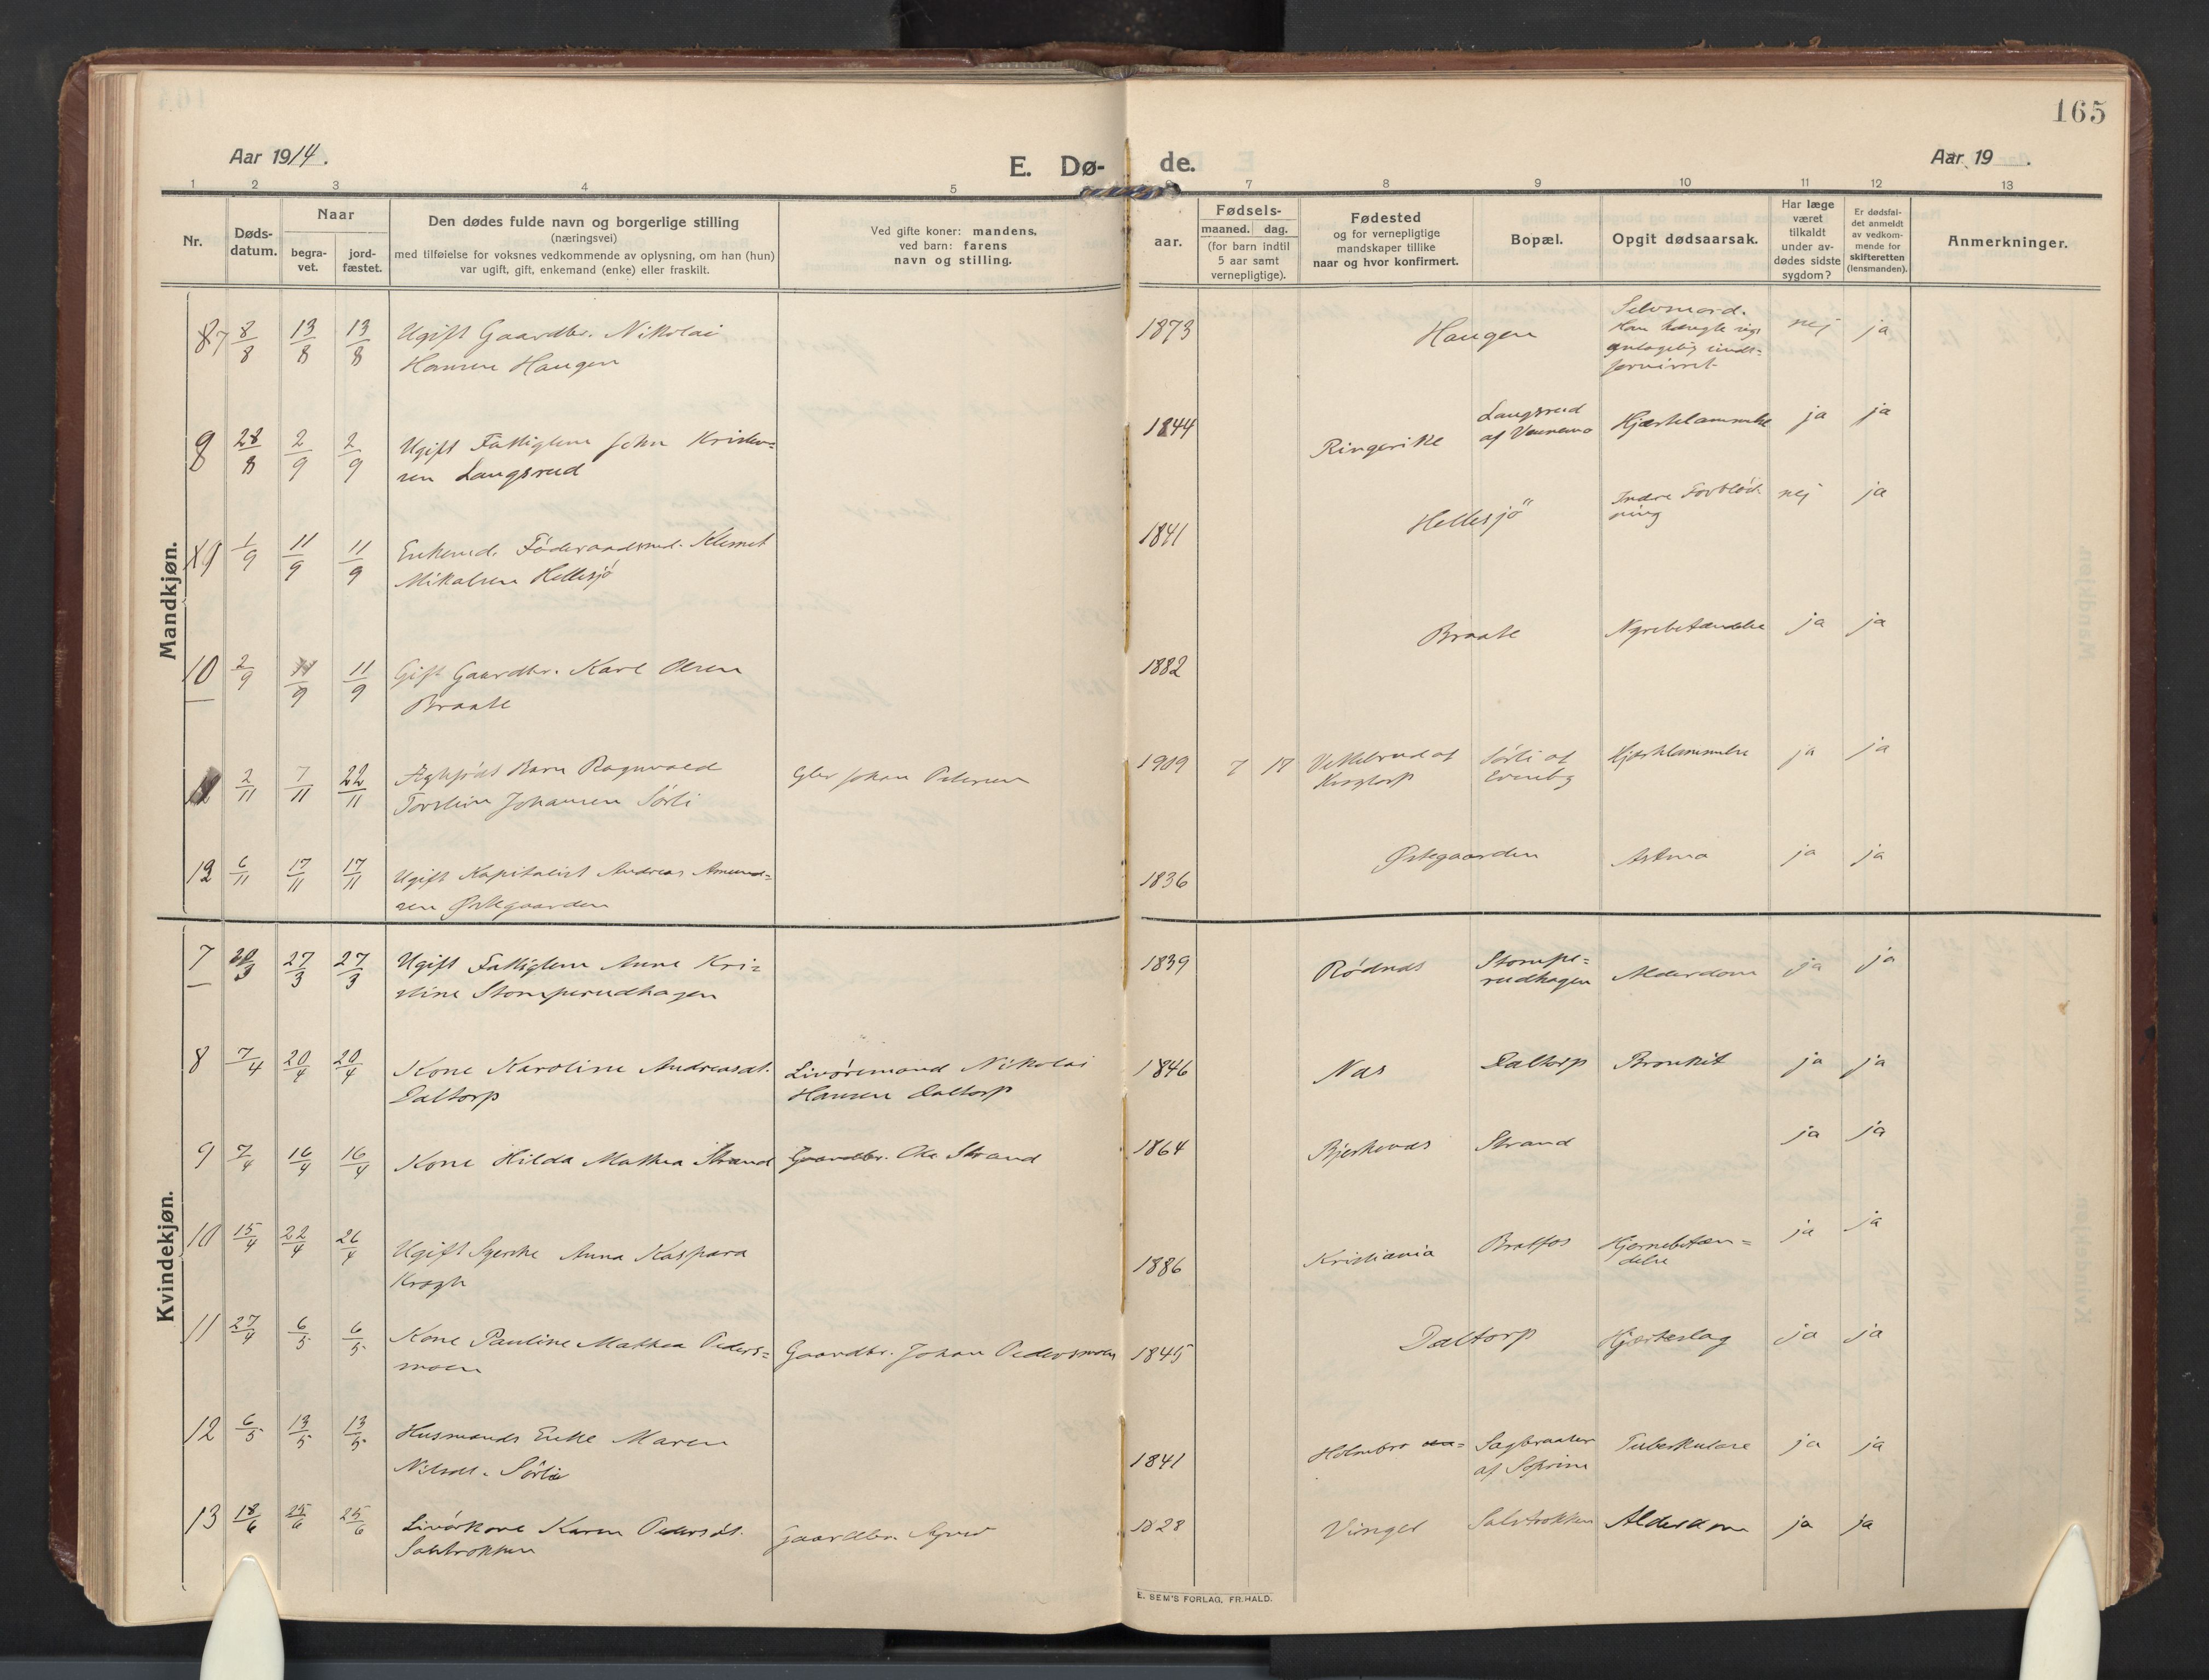 165
Aar 1914.
E. Dø-
de.
Aar 19 .
1 2 3 4 5 7 8 9 10 11 12 13
Nr.
Døds-
datum.
Naar
begra-
vet.
jord-
fæstet.
Den dødes fulde navn og borgerlige stilling
(næringsvei)
med tilføielse for voksnes vedkommende av oplysning, om han (hun)
var ugift, gift, enkemand (enke) eller fraskilt.
Ved gifte koner: mandens,
ved barn: farens
navn og stilling.
aar.
Fødsels-
maaned. dag.
(for barn indtil
5 aar samt
vernepligtige).
Fødested
og for vernepligtige
mandskaper tillike
naar og hvor konfirmert.
Bopæl.
Opgit dødsaarsak.
Har læge
været
tilkaldt
under av-
dødes sidste
sygdom?
Er dødsfal-
det anmeldt
av vedkom-
mende for
skifteretten
(lensmanden).
Anmerkninger.
Mandkjøn.
7 8/8 13/8 13/8 Ugift Gaardbr. Nikolai
Hansen Haugen
1873 Haugen Selvmord. nej ja
8 28/8 2/9 2/9 Ugift Fattiglem John Kristen=
sen Langsrud
1844 Ringerike Langsrud
af
Hjertelammelse ja ja
9 1/9 11/9 11/9 Enkemd. Føderaadsmd. Klemet
Mikalsen Hellesjø
1841 Hellesjø Indre Forblød-
ning
nej ja
10 2/9 11/9 11/9 Gift Gaardbr. Karl Olsen
Braate
1882 Braate Nyrebetændelse ja ja
2/11 7/11 22/11 Barn Ragnvald
Torstein Johansen Sørli
Johan Petersen
1909 7 17 Vettebrud af
Sørli af
Hjertelammelse ja ja
12 6/11 17/11 17/11 Ugift Kapitalist Andreas Amund=
sen Østegaarden
1836 Østegaarden Astma ja ja
Kvindekjøn.
7 27/3 27/3 Ugift Fattiglem Anne Kri=
stine Stomperudhagen
1839 Rødnæs Stompe=
rudhagen
Alderdom ja ja
8 7/4 20/4 20/4 Kone Karoline Andreasdt.
Daltorp
Livøremand Nikolai
Hansen Daltorp
1846 Næs Daltorp Bronkit ja ja
9 7/4 16/4 16/4 Kone Hilda Mathea Strand
Gaardbr. Ole Strand
1864 Strand ja ja
10 15/4 22/4 26/4 Ugift Anna Kaspara
Krogh
1886 Kristiania Bratfos Hjernebetæn=
delse
ja ja
11 27/4 6/5 6/5 Kone Pauline Mathea Peders=
moen
Gaardbr. Johan Pedersmoen
1845 Daltorp Hjerteslag ja ja
12 6/5 13/5 13/5 Husmands Enke Maren
Nilsdt. Sørlie
1841 Sagbraaten
af
Tuberkulose ja ja
13 18/6 25/6 25/6 Livørkone Karen Pedersdt.
Gaardbr.
1828 Vinger Alderdom ja ja
E. SEM'S FORLAG, FR.HALD.